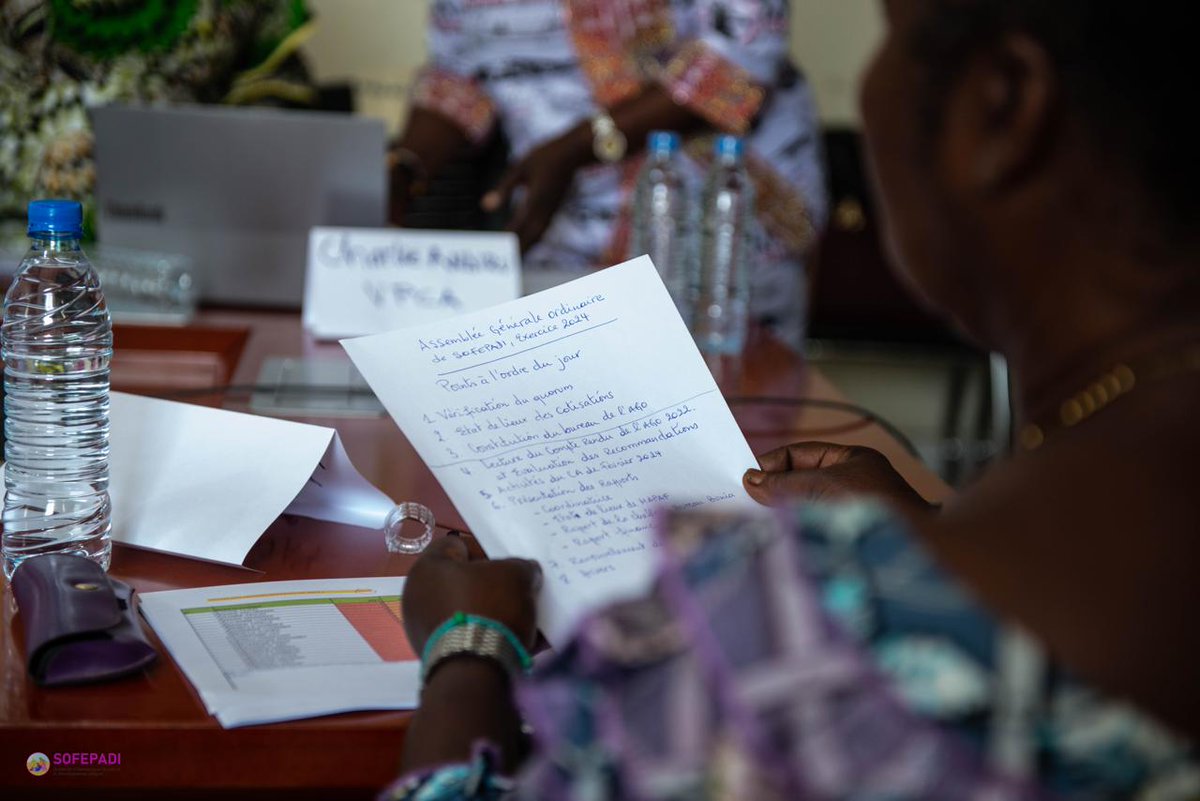 Assemblée Générale ordinaire
de SOFEPADI, Exercice 2024
Points à l'ordre du jour
1. Vérification du quorum
2. Etat de lieux des Cotisations
3. Constitution du bureau de l'AGO
4. Lecture du Compte Rendu de l'AGO 2022.
et Evaluation des Recommandations
5. Activités du CA de Février 2024
6. Présentation des Rapports
- Coordinatrice
- Etat de lieux de
- Rapport de la
- Rapport
7. Renouvellement
8. Divers
VPCA
SOFEPADI